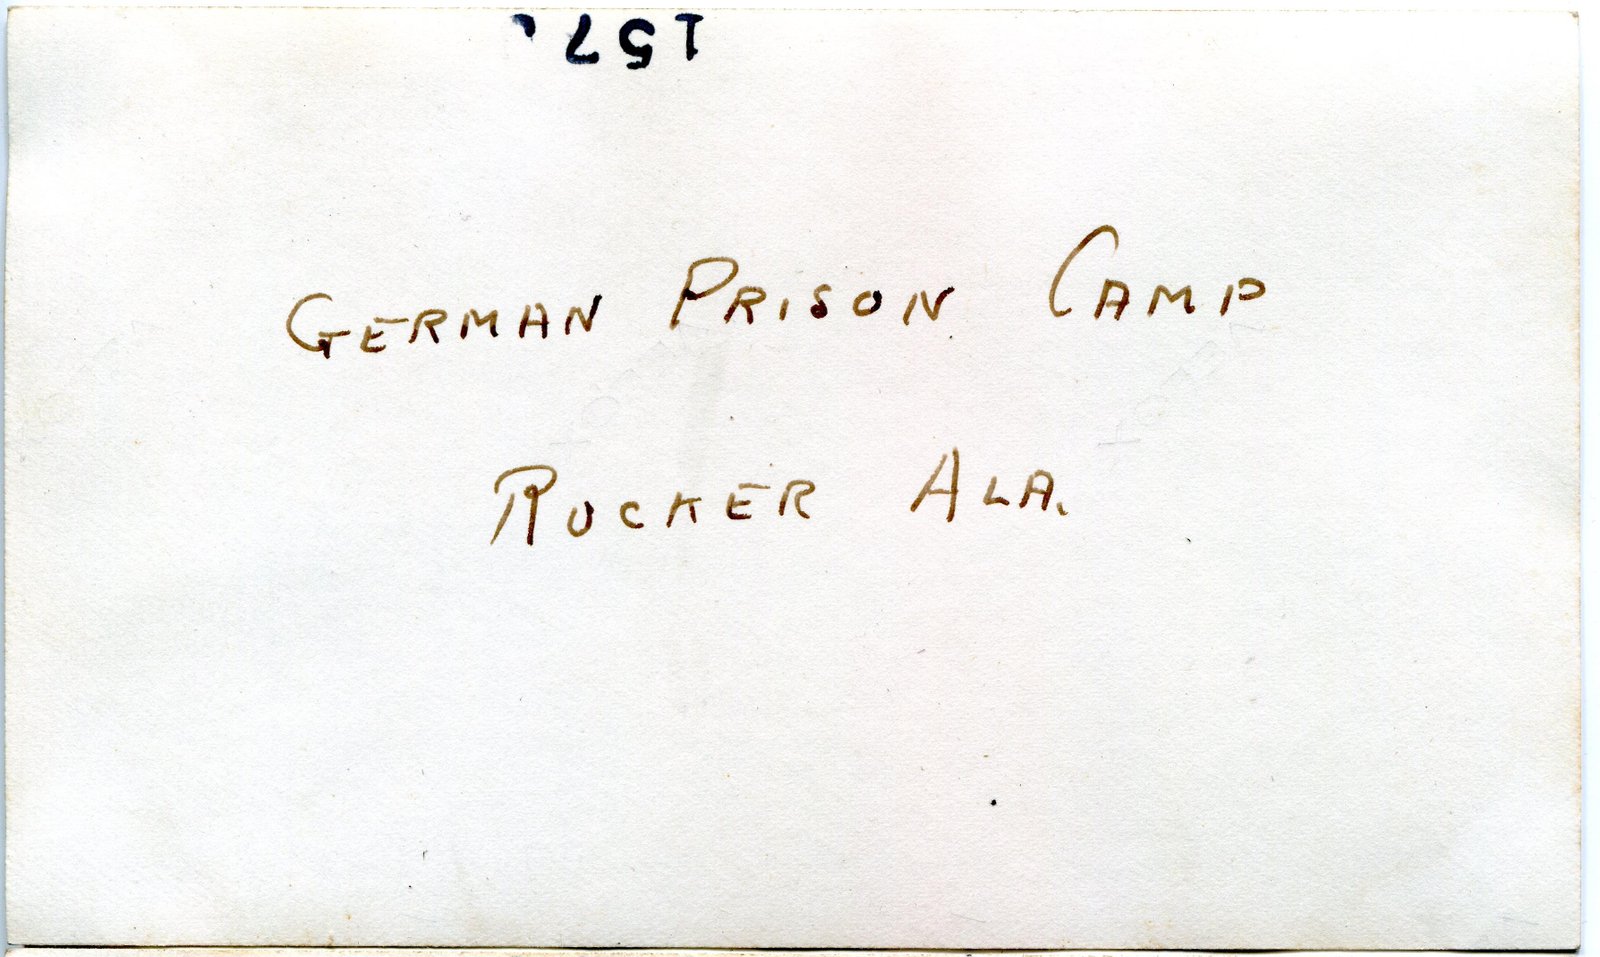 157
GERMAN PRISON CAMP
RUCKER ALA.